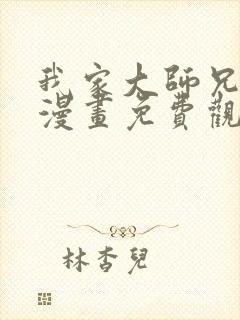 我家大師兄
漫畫免費觀
林杏兒